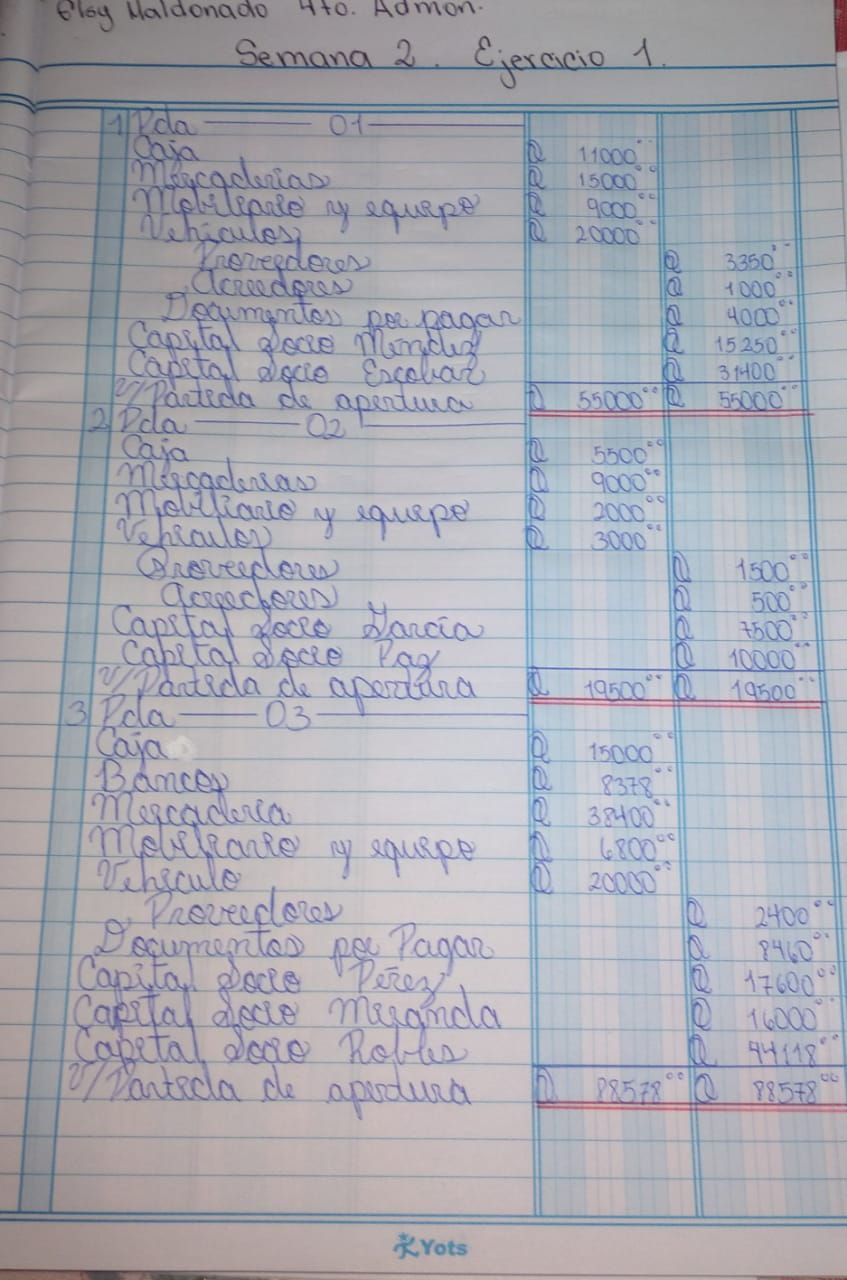 Eloy Maldonado 4to. Admon.
Semana 2. Ejercicio 1.
1 Pda 01
Caja Q 11000°°
Mercaderias Q 15000°°
Mobiliario y equipo Q 9000°°
Vehiculos Q 20000°°
Proveedores Q 3350°°
Acreedores Q 1000°°
Documentos por pagar Q 4000°°
Capital Socio Méndez Q 15250°°
Capital Socio Escobar Q 31400°°
V/ Partida de apertura Q 55000°° Q 55000°°
2 Pda 02
Caja Q 5500°°
Mercaderias Q 9000°°
Mobiliario y equipo Q 2000°°
Vehiculos Q 3000°°
Proveedores Q 1500°°
Acreedores Q 500°°
Capital Socio García Q 7500°°
Capital Socio Paz Q 10000°°
V/ Partida de apertura Q 19500°° Q 19500°°
3 Pda 03
Caja Q 15000°°
Bancos Q 8378°°
Mercaderia Q 38400°°
Mobiliario y equipo Q 6800°°
Vehiculo Q 20000°°
Proveedores Q 2400°°
Documentos por Pagar Q 8460°°
Capital Socio Pérez Q 17600°°
Capital Socio Miranda Q 16000°°
Capital Socio Robles Q 44118°°
V/ Partida de apertura Q 88578°° Q 88578°°
Yots